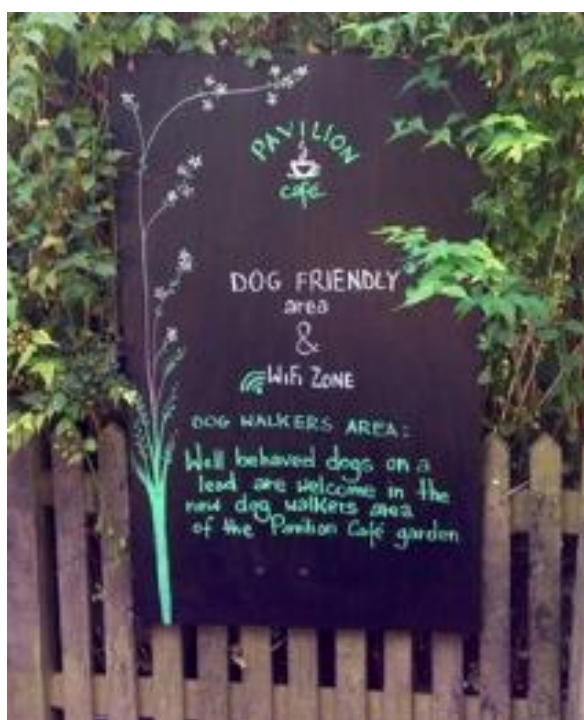 PAVILION
café
DOG FRIENDLY
area
&
WiFi ZONE
DOG WALKERS AREA:
Well behaved dogs on a
lead are welcome in the
new dog walkers area
of the Pavilion Café garden